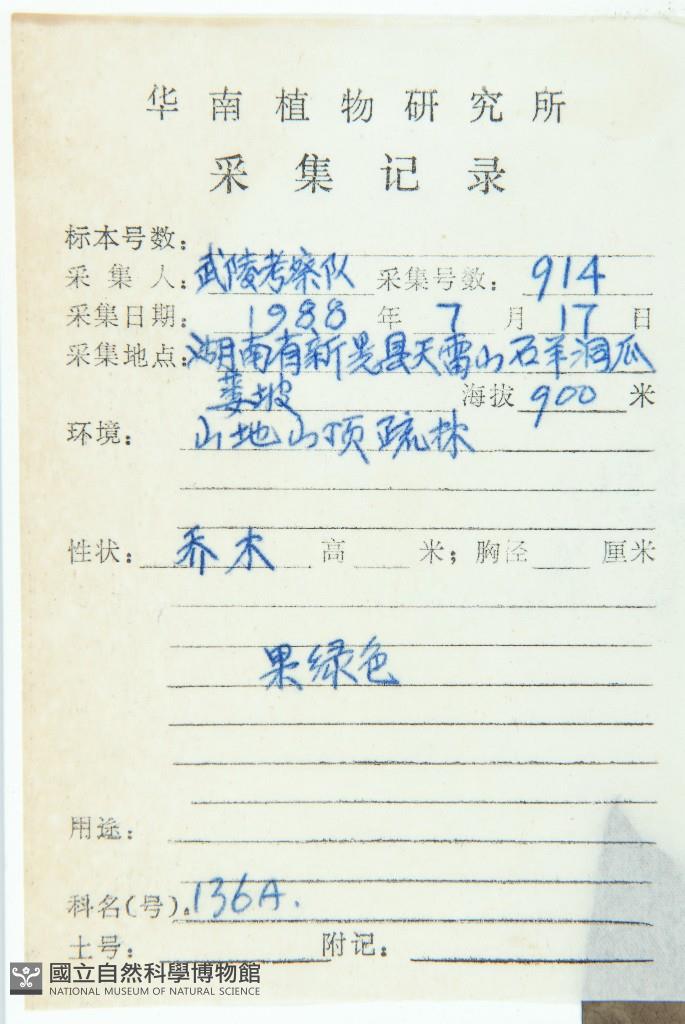 华南植物研究所
采集记录
标本号数:
采集人: 武陵考察队 采集号数: 914
采集日期: 1988 年 7 月 17 日
采集地点: 湖南省新晃县天雷山石羊洞瓜
蒌坡 海拔 900 米
环境: 山地山顶疏林
性状: 乔木 高 米; 胸径 厘米
果绿色
用途:
科名(号). 136A.
土号: 附记:
國立自然科學博物館
NATIONAL MUSEUM OF NATURAL SCIENCE